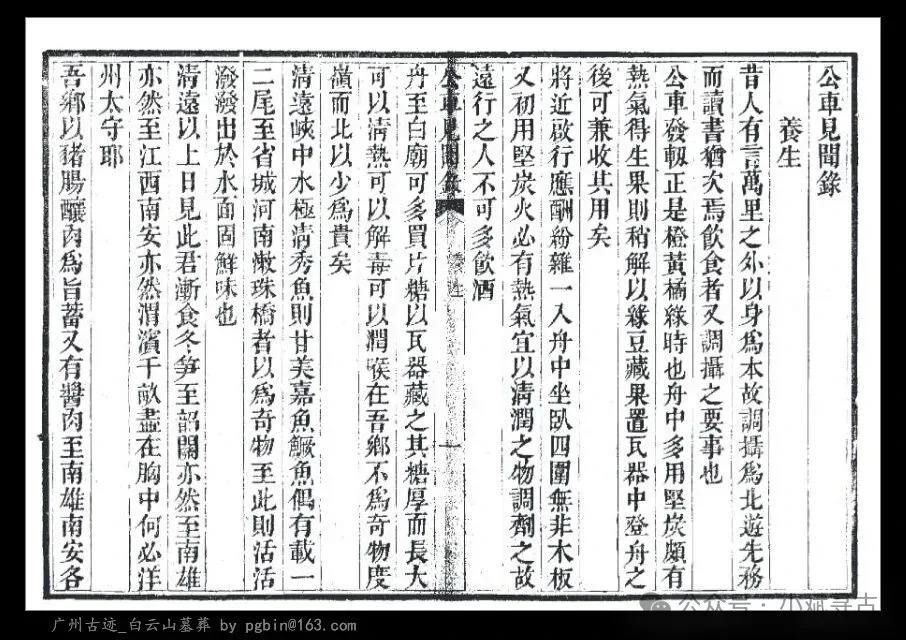 公車見聞錄
養生
昔人有言萬里之外以身爲本故調攝爲北遊先務
而讀書猶次焉飲食者又調攝之要事也
公車發軔正是橙黃橘綠時也舟中多用堅炭頗有
熱氣得生果則稍解以綠豆藏果置瓦器中登舟之
後可兼收其用矣
將近啟行應酬紛雜一入舟中坐臥四圍無非木板
又初用堅炭火必有熱氣宜以清潤之物調劑之故
遠行之人不可多飲酒
公車見聞錄
養生
一
丹至白廟可多買片糖以瓦器藏之其糖厚而長大
可以清熱可以解毒可以潤喉在吾鄉不爲奇物度
嶺而北以少爲貴矣
清遠峽中水極清秀魚則甘美嘉魚鱖魚偶有載一
二尾至省城河南漱珠橋者以爲奇物至此則活活
潑潑出於水面固鮮味也
清遠以上日見此君漸食冬筍至韶關亦然至南雄
亦然至江西南安亦然渭濱千畝盡在胸中何必洋
州太守耶
吾鄉以豬腸釀肉爲旨蓄又有醬肉至南雄南安各
公众号
寻古
广州古迹_白云山墓葬 by pgbin@163.com